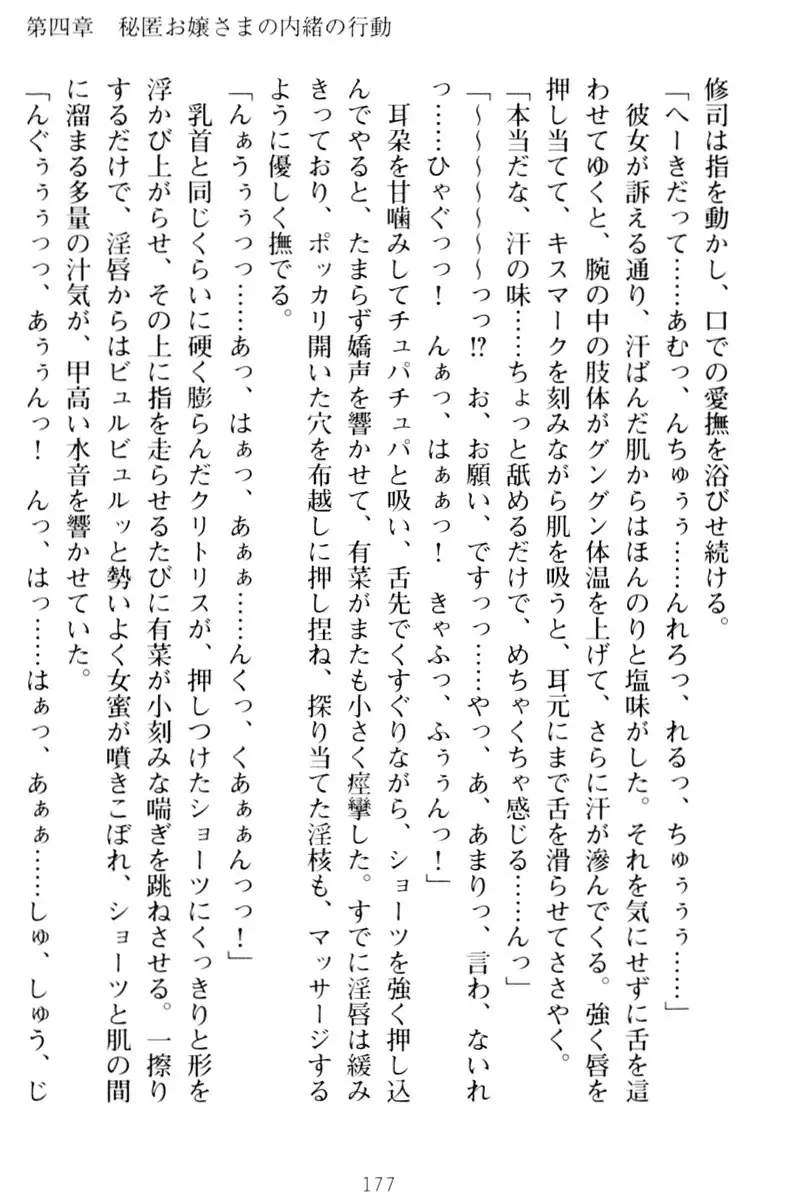 第四章　秘匿お嬢さまの内緒の行動
修司は指を動かし、口での愛撫を浴びせ続ける。
「へーきだって……あむっ、んちゅぅぅ……んれろっ、れるっ、ちゅぅぅぅ……」
彼女が訴える通り、汗ばんだ肌からはほんのりと塩味がした。それを気にせずに舌を這
わせてゆくと、腕の中の肢体がグングン体温を上げて、さらに汗が滲んでくる。強く唇を
押し当てて、キスマークを刻みながら肌を吸うと、耳元にまで舌を滑らせてささやく。
「本当だな、汗の味……ちょっと舐めるだけで、めちゃくちゃ感じる……んっ」
「〜〜〜〜〜〜っっ!?　お、お願い、ですっっ……やっ、あ、あまりっ、言わ、ないれ
っ……ひゃぐっっ！　んぁっ、はぁぁっ！　きゃふっ、ふぅぅんっ！」
耳朶を甘噛みしてチュパチュパと吸い、舌先でくすぐりながら、ショーツを強く押し込
んでやると、たまらず嬌声を響かせて、有菜がまたも小さく痙攣した。すでに淫唇は緩み
きっており、ポッカリ開いた穴を布越しに押し捏ね、探り当てた淫核も、マッサージする
ように優しく撫でる。
「んぁうぅぅっっ……あっ、はぁっ、あぁぁ……んくっ、くあぁぁんっっ！」
乳首と同じくらいに硬く膨らんだクリトリスが、押しつけたショーツにくっきりと形を
浮かび上がらせ、その上に指を走らせるたびに有菜が小刻みな喘ぎを跳ねさせる。一擦り
するだけで、淫唇からはビュルビュルッと勢いよく女蜜が噴きこぼれ、ショーツと肌の間
に溜まる多量の汁気が、甲高い水音を響かせていた。
「んぐぅぅぅっっ、あぅぅんっ！　んっ、はっ……はぁっ、あぁぁ……しゅ、しゅう、じ
177